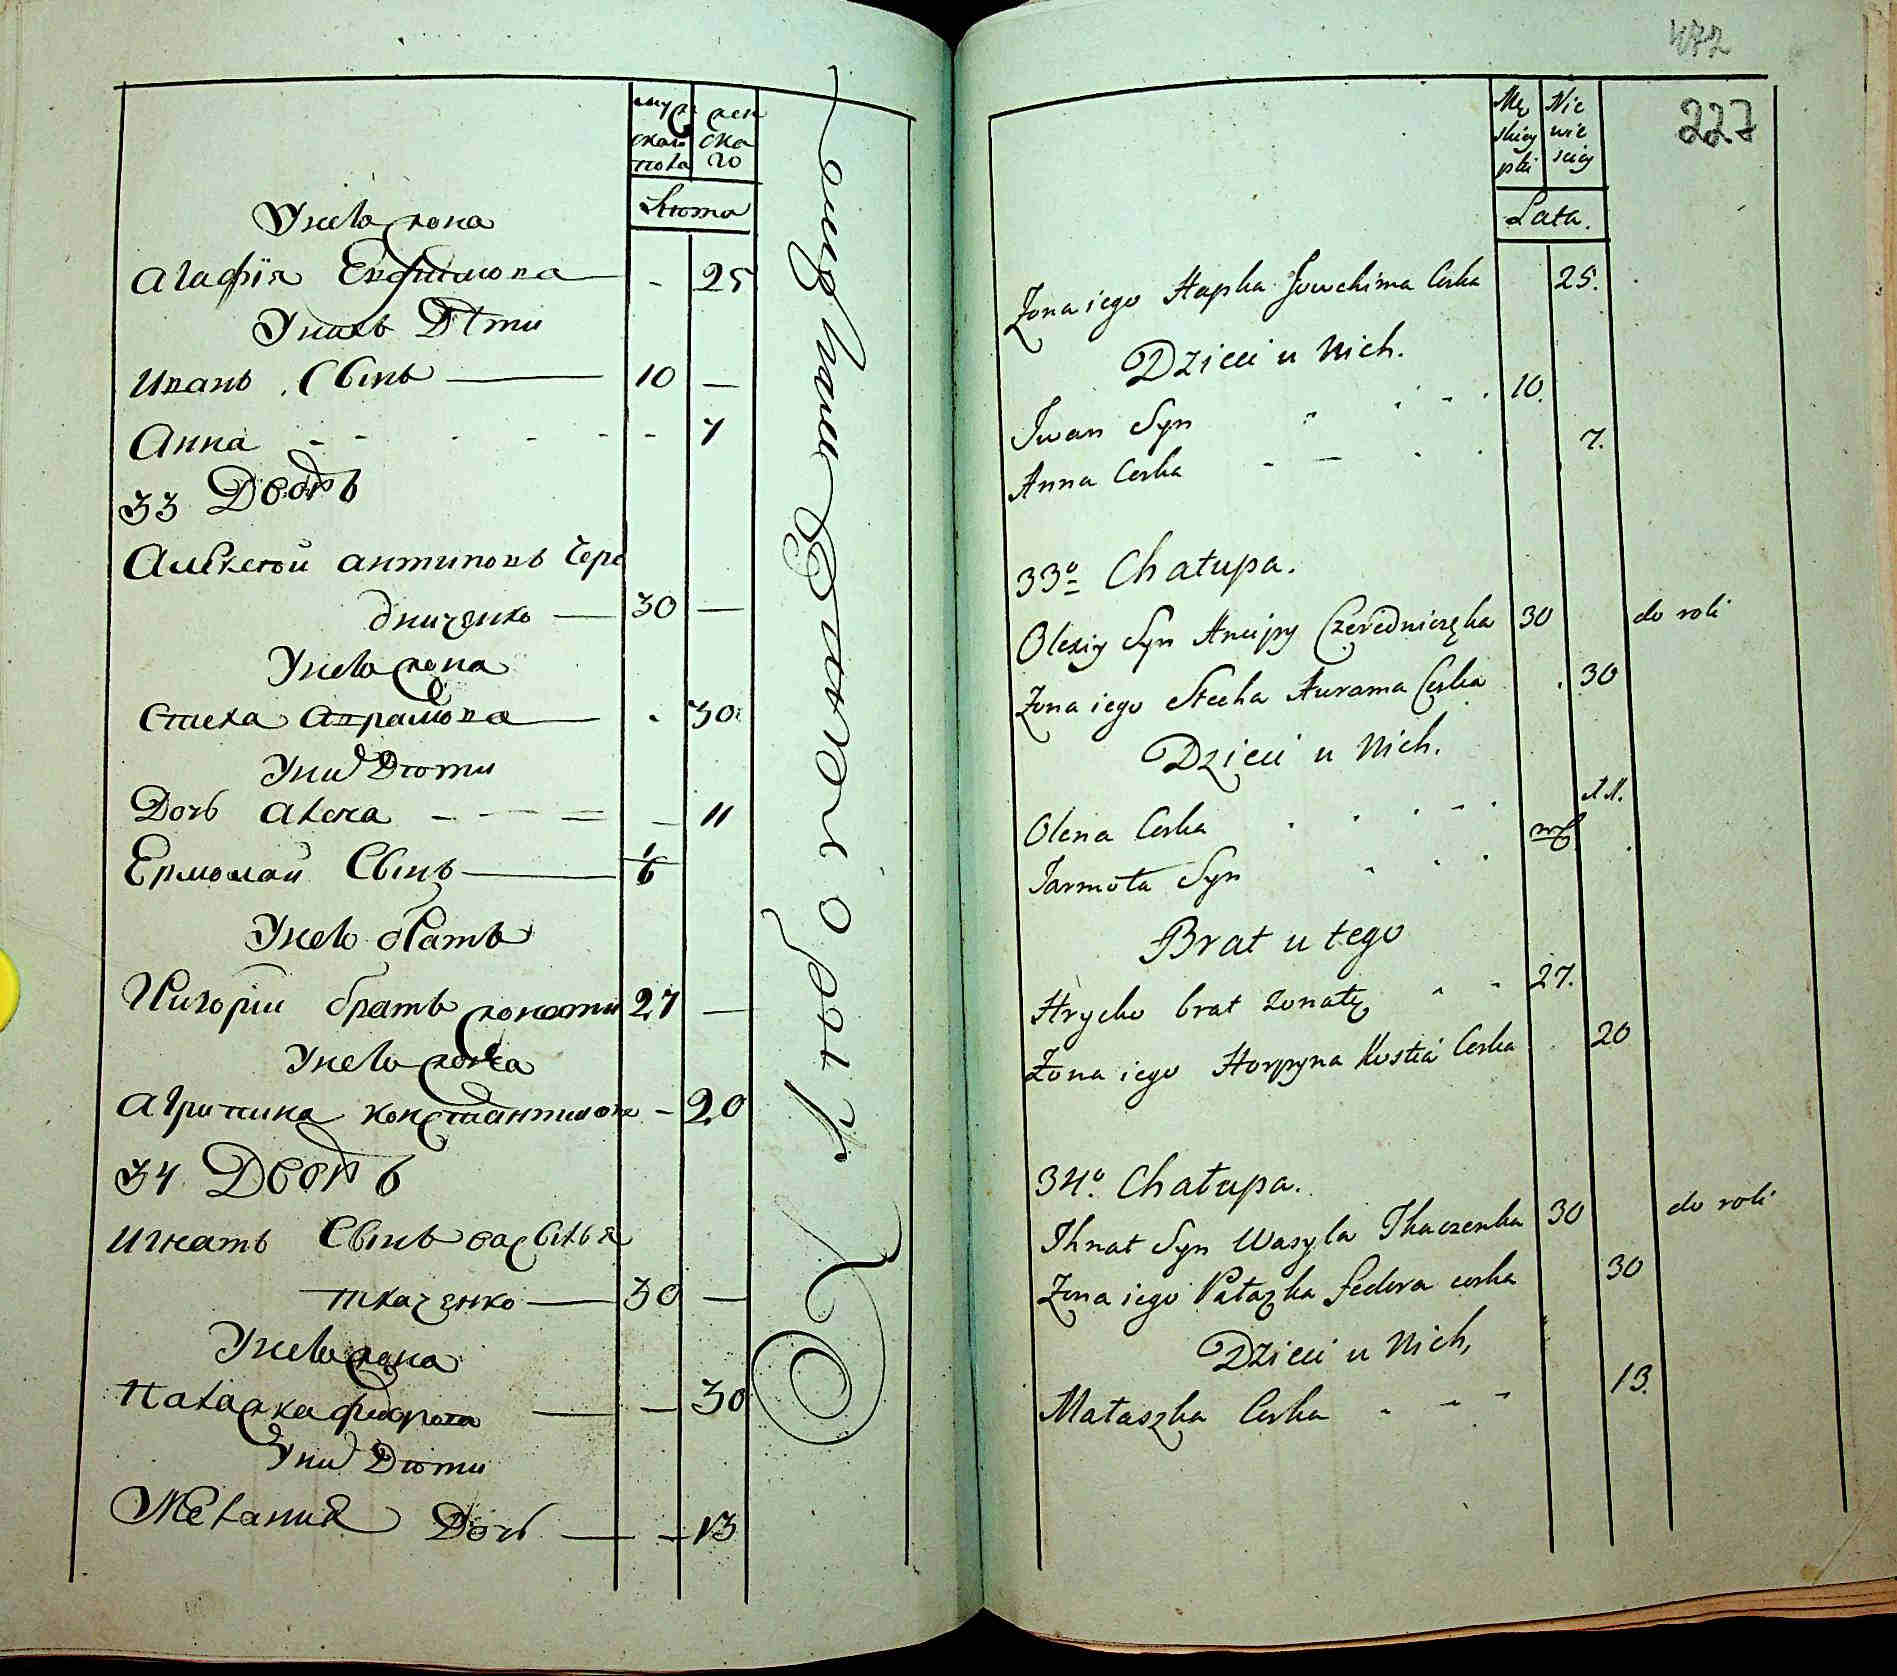 мужскаго пола женскаго
Лѣта
У нево жона
Агафія Евфимова - 25
У нихъ Дѣти
Иванъ Сынъ 10 —
Анна - 7
33 Дворъ
Алексѣй антиповъ Чере
дниченко 30 —
У нево жона
Стеха Аврамова 30
У ни Дѣти
Дочь Алена — 11
Ермолай Сынъ
У нево братъ
Григорій братъ жонатый 27 —
У нево жона
Агрипина константинова - 20
34 Дворъ
Игнатъ Сынъ василья
ткаченко 30 —
У нево жона
Палажка федорова — 30
У ни Дѣти
Мелания Дочь — 13
472
227
Męskiey płci Niewieściey
Lata.
Zona iego Hapka Jowchima Corka 25.
Dzieci u Nich.
Iwan Syn 10.
Anna Corka 7.
33º Chałupa.
Olexiy Syn Ancipy Czeredniczęka 30 do roli
Zona iego Stecha Awrama Corka 30
Dzieci u Nich.
Olena Corka 11.
Jarmoła Syn
Brat u tego
Hrycko brat żonatę 27.
Zona iego Horpyna Kostia Corka 20
34º. Chałupa.
Ihnat Syn Wasyla Tkaczenka 30 do roli
Zona iego Pałazka Fedora corka 30
Dzieci u Nich,
Małaszka Corka 13.